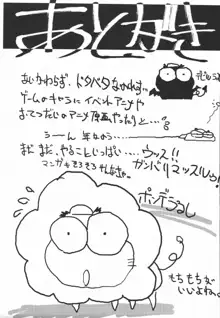 あとがき
あいかわらず、ドタバタなかんじ。
ゲームのキャラに イベント アニメや
おてつだいのアニメ 原画やったりと…。
うーん 年なのう…
まだ まだ、やること いっぱい……ウッス!!
ガンバリマッスルっ!
マンガ
ポンデうるし
もち もちが
いいよね。